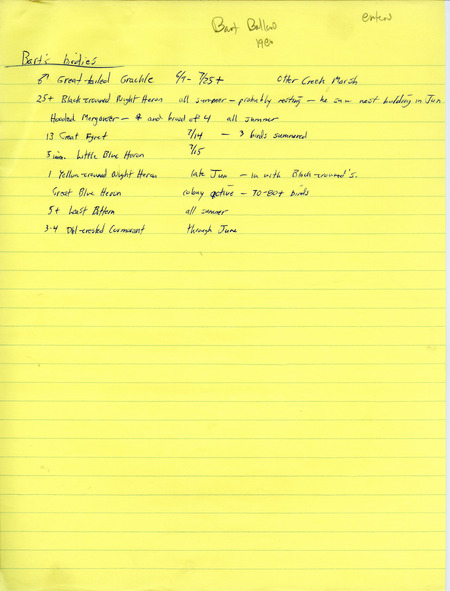 Bart Ballard
1986
enter
Bart's birdies
♂ Great-tailed Grackle 6/9 - 7/25+ Otter Creek Marsh
25+ Black-crowned Night Heron all summer - probably nesting - he saw nest building in Jun
Hooded Merganser - ♀ and brood of 4 all summer
13 Great Egret 7/14 - 3 birds summered
5 imm. Little Blue Heron 7/15
1 Yellow-crowned Night Heron late Jun - in with Black-crowned's.
Great Blue Heron colony active - 70-80+ birds
5+ Least Bittern all summer
3-4 Dbl-crested Cormorant through June